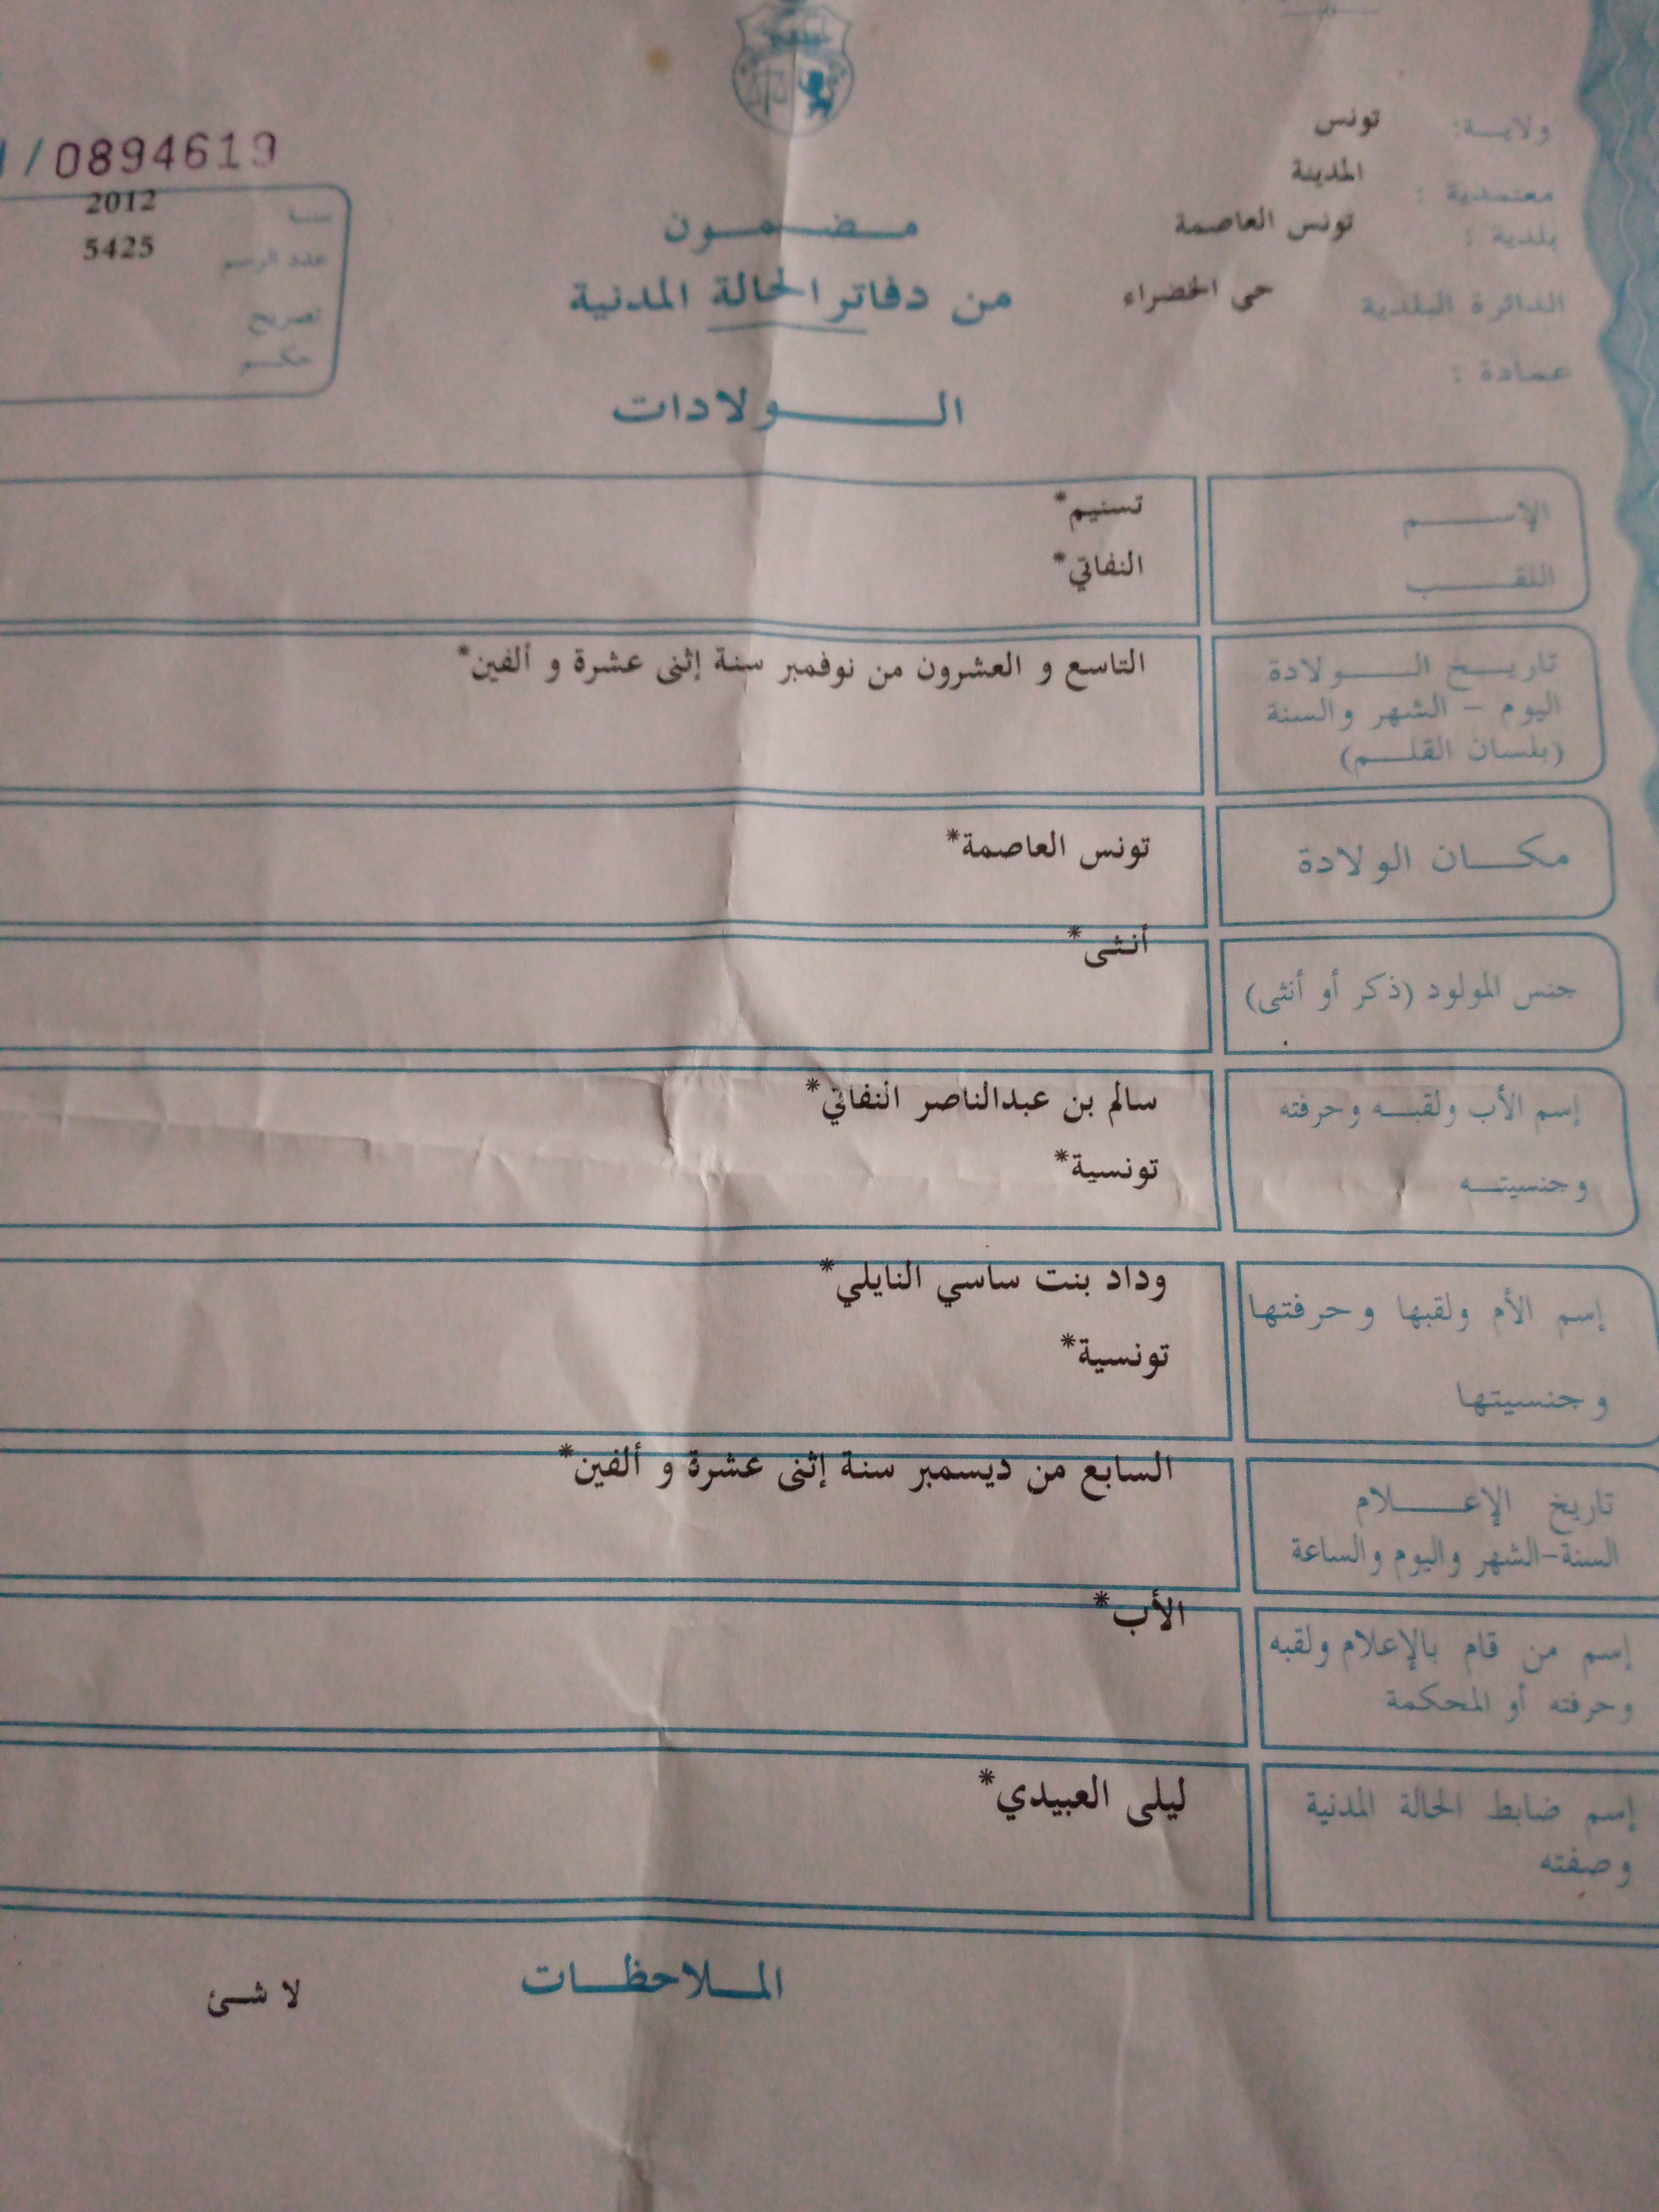 ولاية: تونس
معتمدية : المدينة
بلدية : تونس العاصمة
الدائرة البلدية حى الخضراء
عمادة :
/0894619
سنة 2012
عدد الرسم 5425
تصريح
حكم
مضمون
من دفاتر الحالة المدنية
الولادات
الإسم تسنيم*
اللقب النفاتي*
تاريخ الولادة التاسع و العشرون من نوفمبر سنة إثنى عشرة و ألفين*
اليوم - الشهر والسنة
(بلسان القلم)
مكان الولادة تونس العاصمة*
جنس المولود (ذكر أو أنثى) أنثى*
إسم الأب ولقبه وحرفته سالم بن عبدالناصر النفاتي*
وجنسيته تونسية*
إسم الأم ولقبها وحرفتها وداد بنت ساسي النايلي*
وجنسيتها تونسية*
تاريخ الإعلام السابع من ديسمبر سنة إثنى عشرة و ألفين*
السنة-الشهر واليوم والساعة
إسم من قام بالإعلام ولقبه الأب*
وحرفته أو المحكمة
إسم ضابط الحالة المدنية ليلى العبيدي*
وصفته
الملاحظات لا شئ